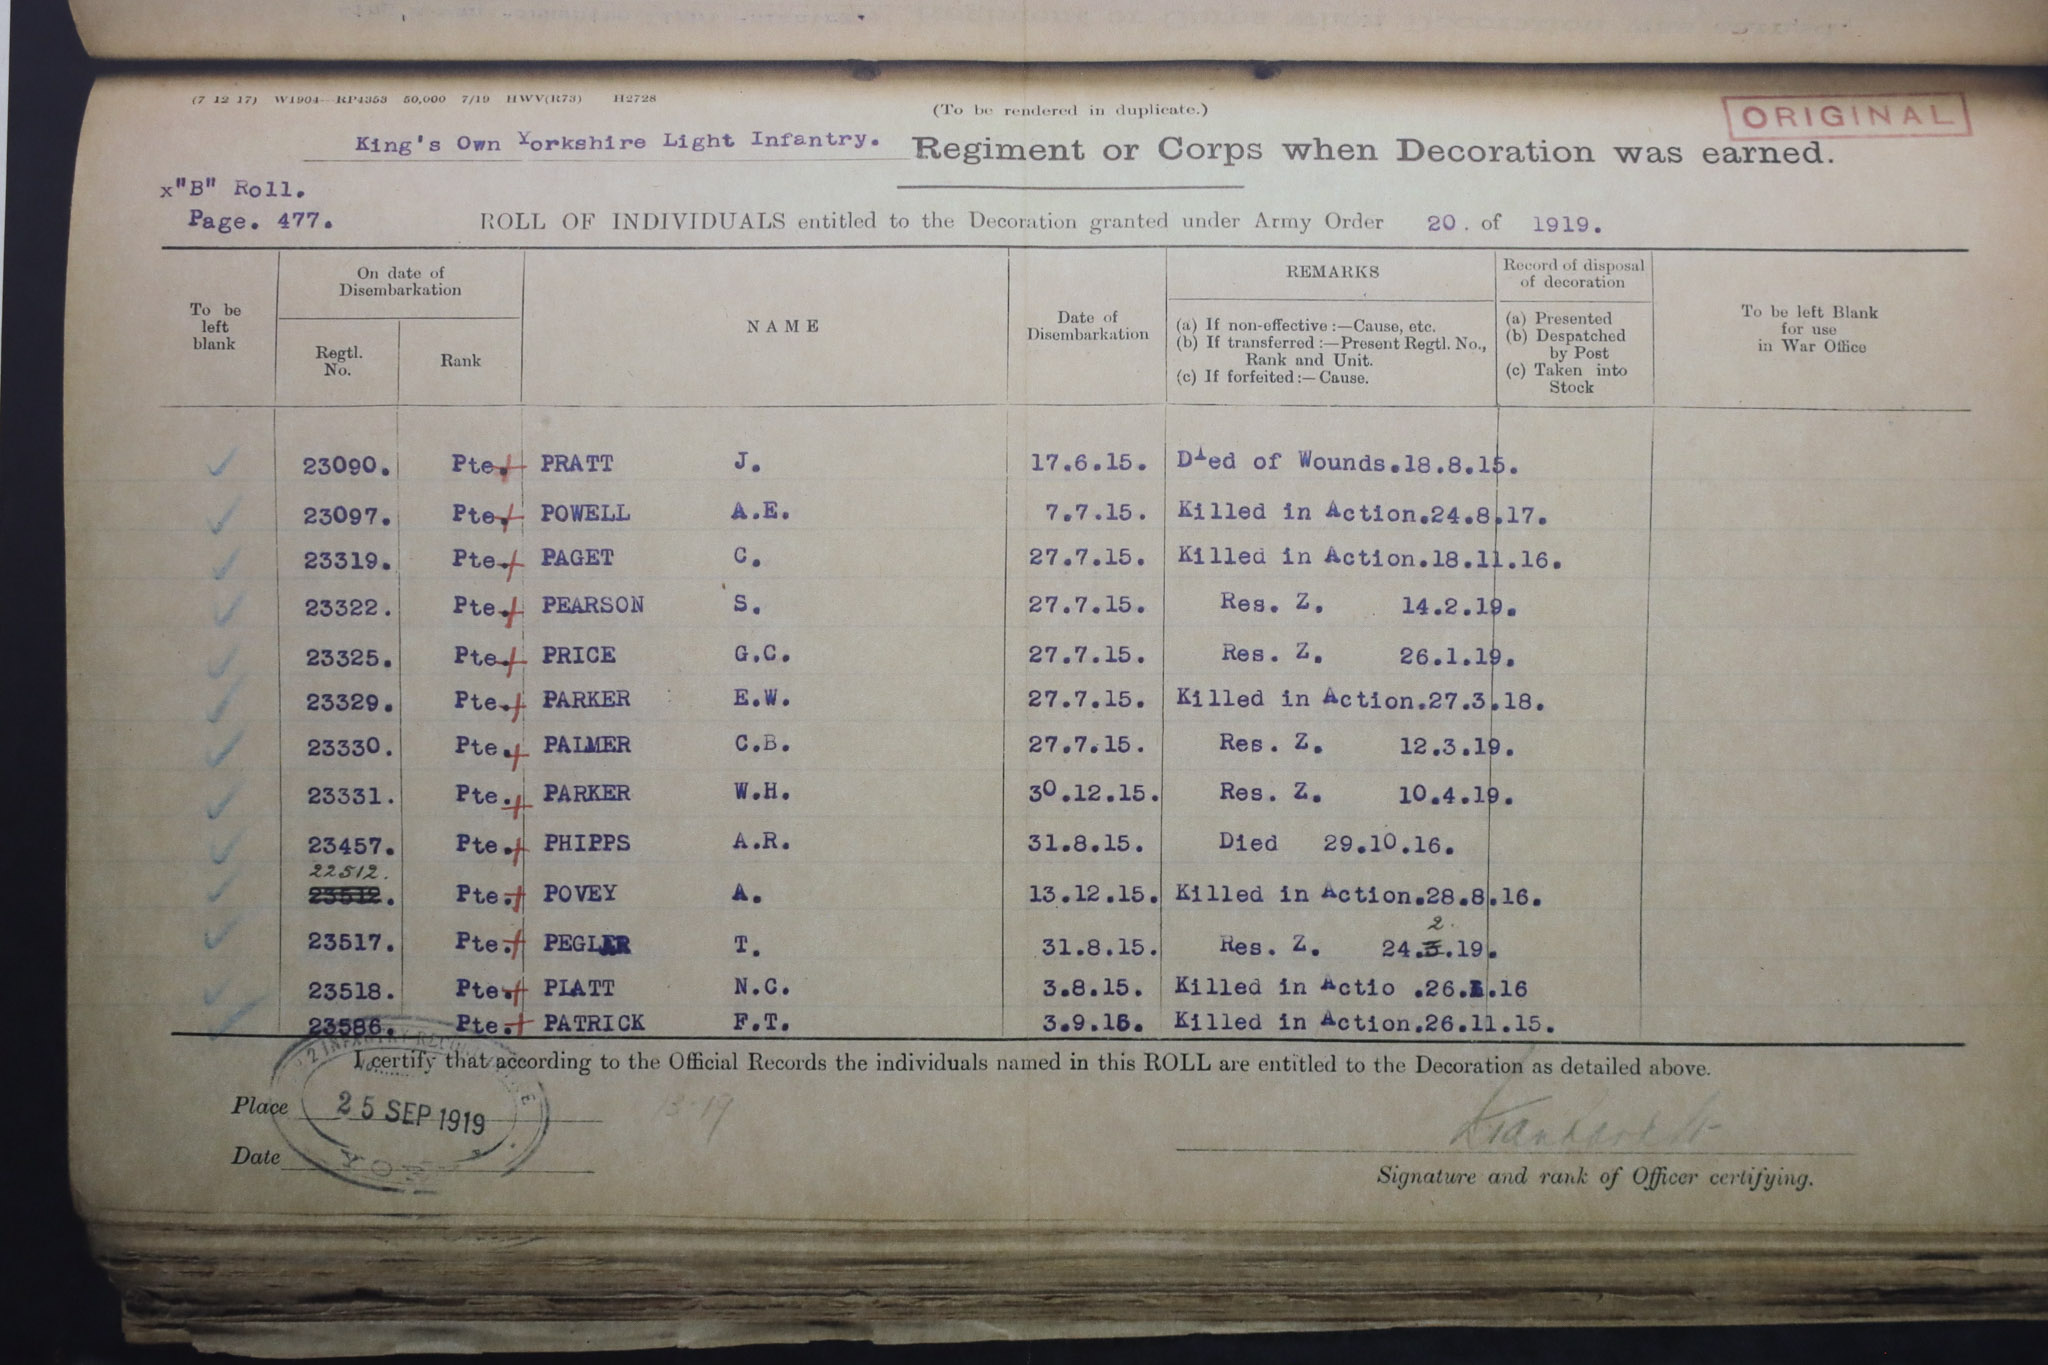 (7 12 17) W1904—RP4353 50,000 7/19 HWV(R73) H2728
(To be rendered in duplicate.)
ORIGINAL
King's Own Yorkshire Light Infantry. Regiment or Corps when Decoration was earned.
x"B" Roll.
Page. 477.
ROLL OF INDIVIDUALS entitled to the Decoration granted under Army Order 20. of 1919.
To be left blank
On date of Disembarkation
Regtl. No.
Rank
NAME
Date of Disembarkation
REMARKS
(a) If non-effective :—Cause, etc.
(b) If transferred :—Present Regtl. No., Rank and Unit.
(c) If forfeited :—Cause.
Record of disposal of decoration
(a) Presented
(b) Despatched by Post
(c) Taken into Stock
To be left Blank for use in War Office
23090. Pte. PRATT J. 17.6.15. Died of Wounds.18.8.15.
23097. Pte. POWELL A.E. 7.7.15. Killed in Action.24.8.17.
23319. Pte. PAGET C. 27.7.15. Killed in Action.18.11.16.
23322. Pte. PEARSON S. 27.7.15. Res. Z. 14.2.19.
23325. Pte. PRICE G.C. 27.7.15. Res. Z. 26.1.19.
23329. Pte. PARKER E.W. 27.7.15. Killed in Action.27.3.18.
23330. Pte. PALMER C.B. 27.7.15. Res. Z. 12.3.19.
23331. Pte. PARKER W.H. 30.12.15. Res. Z. 10.4.19.
23457. Pte. PHIPPS A.R. 31.8.15. Died 29.10.16.
22512.
23512. Pte. POVEY A. 13.12.15. Killed in Action.28.8.16.
2.
23517. Pte. PEGLER T. 31.8.15. Res. Z. 24.3.19.
23518. Pte. PLATT N.C. 3.8.15. Killed in Actio .26. .16
23586. Pte. PATRICK F.T. 3.9.15. Killed in Action.26.11.15.
I certify that according to the Official Records the individuals named in this ROLL are entitled to the Decoration as detailed above.
Place
25 SEP 1919
Date
YORK
Signature and rank of Officer certifying.